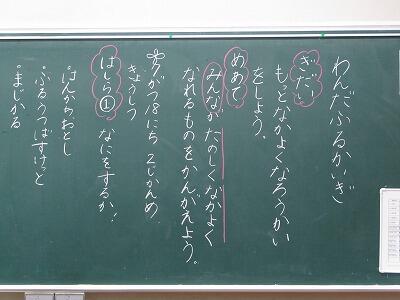 わんだふるかいぎ
ぎだい
もっとなかよくなろうかい
をしよう。
めあて
みんながたのしくなかよく
なれるものをかんがえよう。
がつ18にち2じかんめ
きょうしつ
はしら① なにをするか!
・はんかちおとし
・ふるうつばすけっと
・まじかる